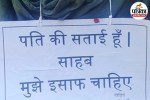 पत्रिका
पति की सताई हूँ।
साहब
मुझे इसाफ चाहिए